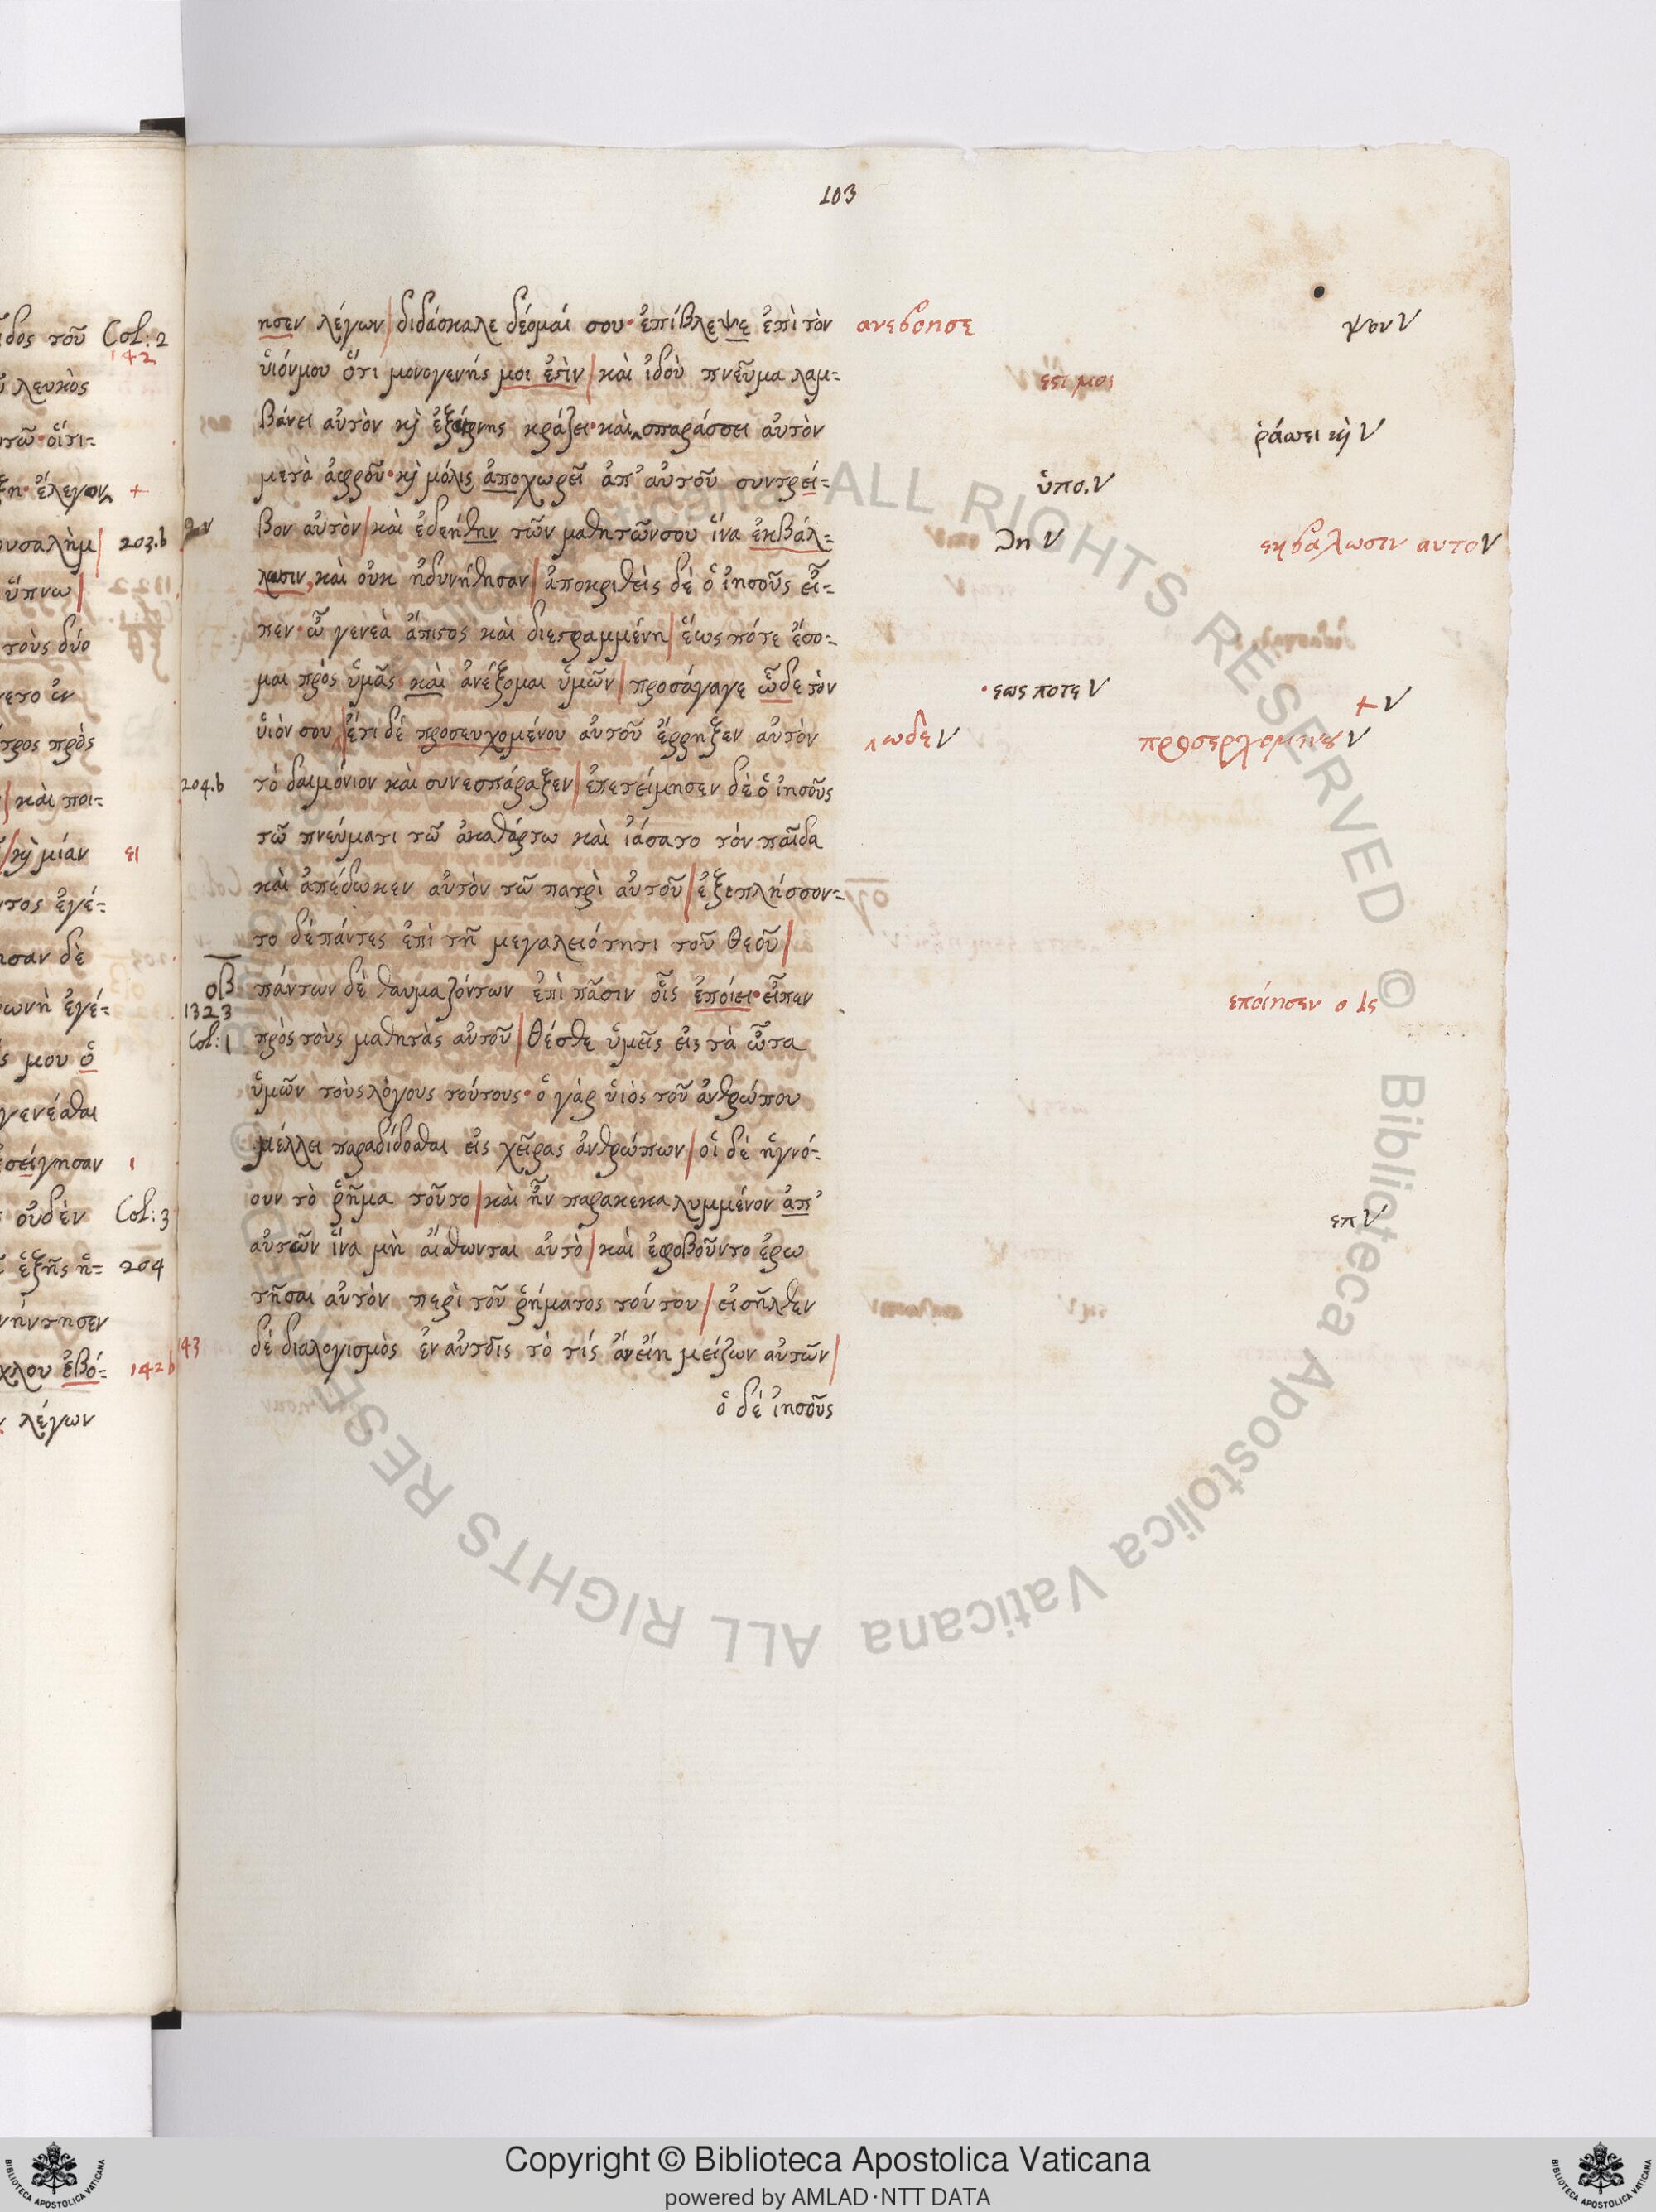 103
ησεν λέγων/διδάσκαλε δέομαί σου· ἐπίβλεψε ἐπὶ τὸν
ανεβοησε
ψον V
ὑιόνμου ὅτι μονογενής μοι ἐστὶν/καὶ ἰδοὺ πνεῦμα λαμ=
εστ μοι
βάνει αὐτὸν κὶ ἐξαίφνης κράζει· καὶ σπαράσσει αὐτὸν
ράσσει κὶ V
μετὰ ἀφροῦ· κὶ μόλις ἀποχωρεῖ ἀπ' αὐτοῦ συντρεί=
ὑπο. V
203.b
βον αὐτὸν/καὶ ἐδεήθην τῶν μαθητῶνσου ἵνα ἐκβάλ=
θη V
εκβαλωσιν αυτο V
λωσιν, καὶ οὐκ ἠδυνήθησαν/ἀποκριθεὶς δὲ ὁ ἰησοῦς εἶ=
πεν· ὦ γενεὰ ἄπιστος καὶ διεστραμμένη/ἕως πότε ἔσο=
μαι πρὸς ὑμᾶς καὶ ἀνέξομαι ὑμῶν/προσάγαγε ὧδε τὸν
·εως ποτε V
+ V
ὑιόν σου/ἔτι δέ προσευχομένου αὐτοῦ ἔρρηξεν αὐτὸν
ωδε V
προσερχομενου V
204.b
τὸ δαιμόνιον καὶ συνεσπάραξεν/ἐπετείμησεν δὲ ὁ ἰησοῦς
τῶ πνεύματι τῶ ἀκαθάρτω καὶ ἰάσατο τὸν παῖδα
καὶ ἀπέδωκεν αὐτὸν τῶ πατρὶ αὐτοῦ/ἐξεπλήσσον=
το δέ πάντες ἐπὶ τῆ μεγαλειότητι τοῦ θεοῦ/
οβ
πάντων δὲ θαυμαζόντων ἐπὶ πᾶσιν οἷς ἐποίει· εἶπεν
εποιησεν ο ις
1323
Col: 1
πρὸς τοὺς μαθητὰς αὐτοῦ/θέσθε ὑμεῖς εἰς τὰ ὦτα
ὑμῶν τοὺς λόγους τούτους· ὁ γάρ ὑιὸς τοῦ ἀνθρώπου
μέλλει παραδίδοσθαι εἰς χεῖρας ἀνθρώπων/οἱ δὲ ἠγνό=
ουν τὸ ῥῆμα τοῦτο/καὶ ἦν παρακεκαλυμμένον ἀπ'
επ V
αὐτῶν ἵνα μὴ αἴσθωνται αὐτὸ/καὶ ἐφοβοῦντο ἐρω
τῆσαι αὐτὸν περὶ τοῦ ῥήματος τούτου/εἰσῆλθεν
143
δέ διαλογισμὸς ἐν αὐτοῖς τὸ τίς ἂν εἴη μείζων αὐτῶν/
ὁ δέ ἰησοῦς
δος τοῦ Col: 2
142
λευκὸς
ἔλεγον +
203.b
ὕπνω/
τοὺς δύο
πρὸς
/καὶ ποι=
/κὶ μίαν ει
ἐγέ=
ησαν δὲ
ωνὴ ἐγέ=
μου ὁ
γενέσθαι
ἐσείγησαν ι
οὐδὲν Col: 3
ἑξῆς ἡ= 204
νήντησεν
χλου ἐβό= 142b
λέγων
© Biblioteca Apostolica Vaticana ALL RIGHTS RESERVED
Copyright © Biblioteca Apostolica Vaticana
powered by AMLAD·NTT DATA
BIBLIOTECA APOSTOLICA VATICANA
BIBLIOTECA APOSTOLICA VATICANA